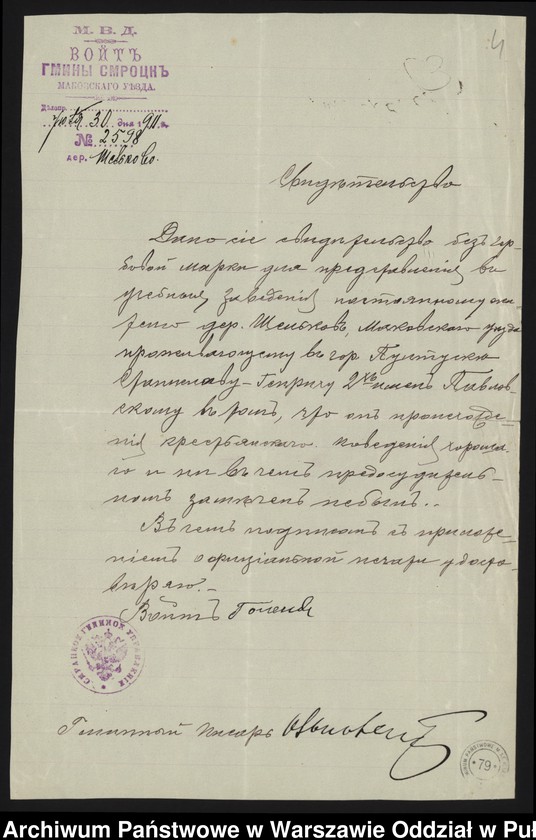 М. В. Д.
ВОЙТЪ
ГМИНЫ СМРОЦКЪ
МАКОВСКАГО УѢЗДА.
30 дня 1911 г.
№ 2598
дер. Шельково.
4
Свидѣтельство
Дано сіе свидѣтельство безъ гер-
бовой марки для представленія въ
учебныя заведенія постоянному жи-
телю дер. Щельковъ, Маковскаго уѣзда
проживающему въ гор. Пултускѣ
Станиславу-Генриху 2хъ именъ Павлов-
скому въ томъ, что онъ происхожде-
нія крестьянскаго поведенія хороша-
го и ни въ чемъ предосудитель-
номъ замѣченъ небылъ..
Въ чемъ подписомъ съ приложе-
ніемъ оффиціальной печати удосто-
вѣряю.-
Войтъ
ГМИННОЕ УПРАВЛЕНІЕ
Гминный писарь
79
Archiwum Państwowe w Warszawie Oddział w Puł